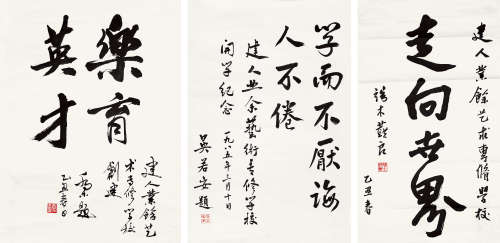 樂育
英才
建人業餘艺
术专修學校
創建
乙丑春日
學而不厭誨
人不倦
建人业余藝術专修学校
開学纪念
一九八五年三月十日
吴若安題
建人業餘艺术專脩學校
走向世界
乙丑春